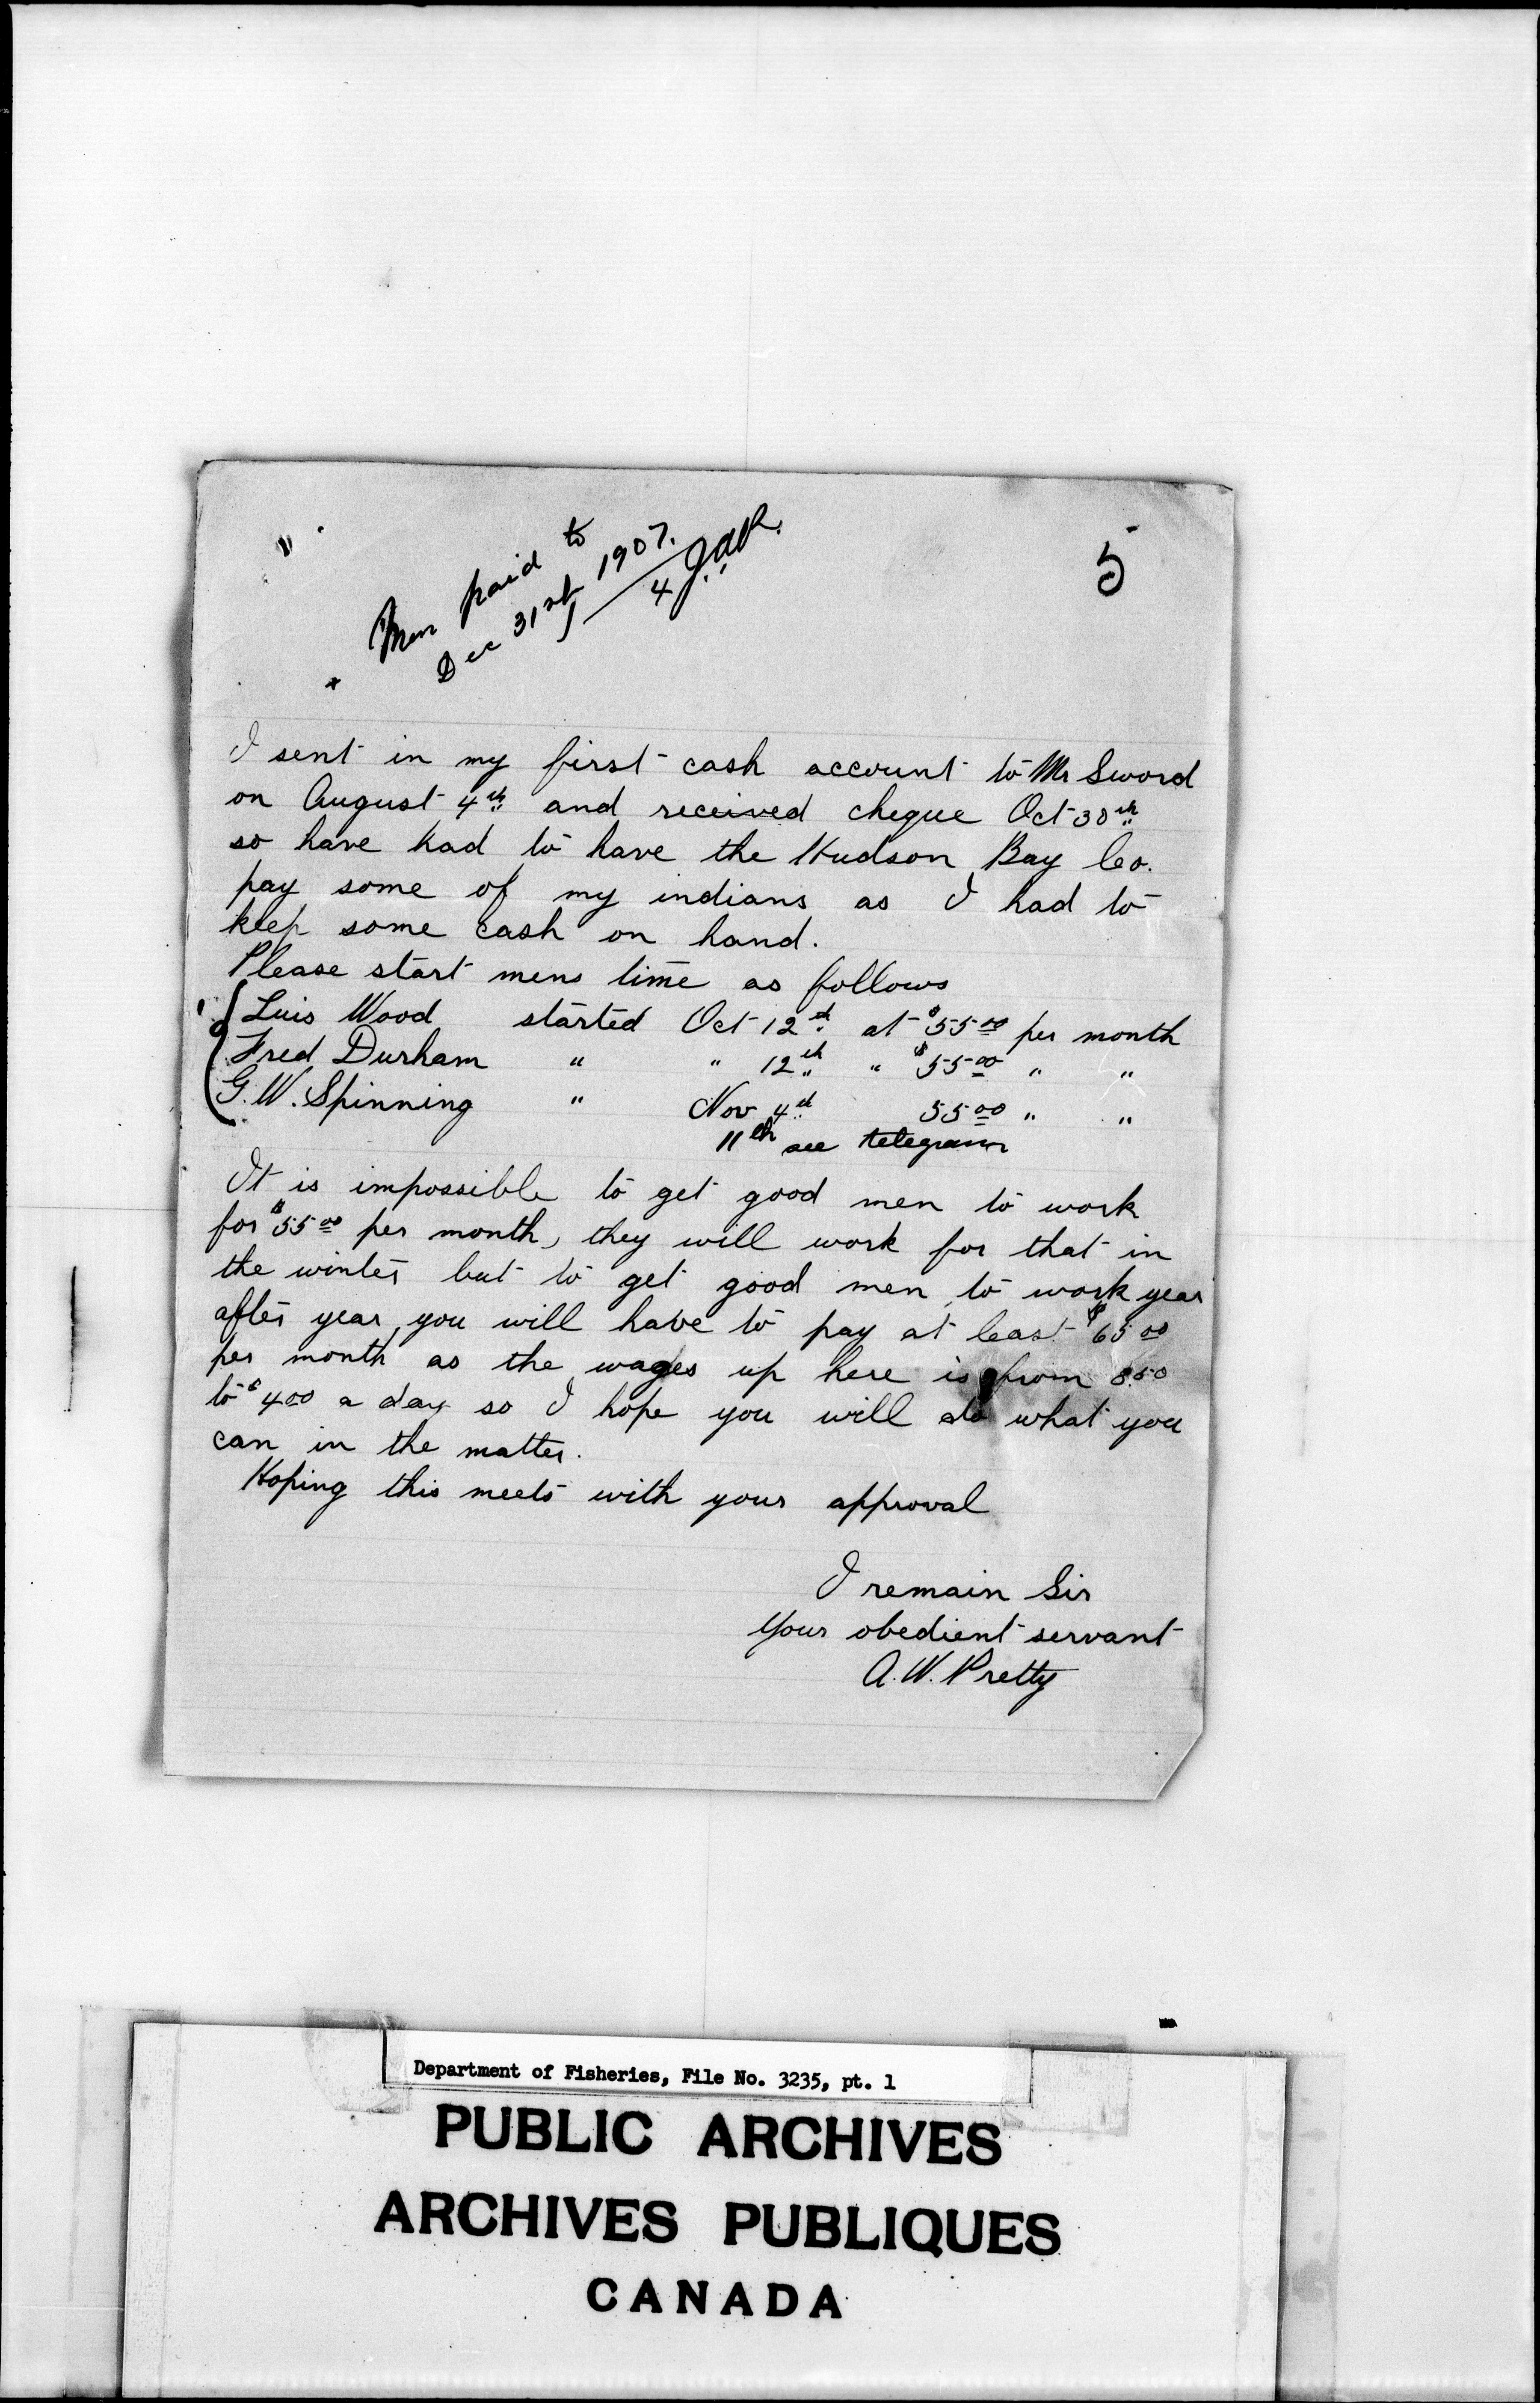 Men paid to
Dec 31st 1907.
4 J.A.R.
5
I sent in my first cash account to Mr Sword
on August 4th and received cheque Oct 30th
so have had to have the Hudson Bay Co.
pay some of my indians as I had to
keep some cash on hand.
Please start mens time as follows
Luis Wood started Oct 12th at $55.00 per month
Fred Durham " " 12th " $55.00 " "
G. W. Spinning " Nov 4th 55.00 " "
11th see telegram
It is impossible to get good men to work
for $55.00 per month, they will work for that in
the winter but to get good men to work year
after year, you will have to pay at least $65.00
per month as the wages up here is from 3.50
to $4.00 a day so I hope you will do what you
can in the matter.
Hoping this meets with your approval
I remain Sir
Your obedient servant
A. W. Pretty
Department of Fisheries, File No. 3235, pt. 1
PUBLIC ARCHIVES
ARCHIVES PUBLIQUES
CANADA